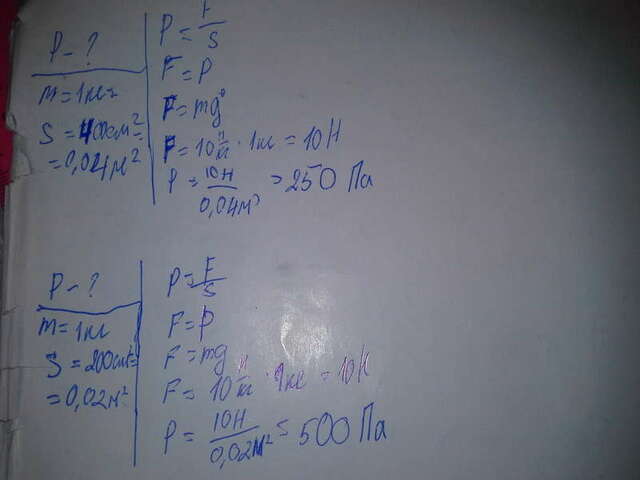 P - ?
m = 1кг
S = 400см² =
= 0,04м²
P = F/S
F = P
F = mg
F = 10 н/кг · 1кг = 10Н
P = 10Н/0,04м² = 250 Па
P - ?
m = 1кг
S = 200см² =
= 0,02м²
P = F/S
F = P
F = mg
F = 10 н/кг · 1кг = 10Н
P = 10Н/0,02м² = 500 Па